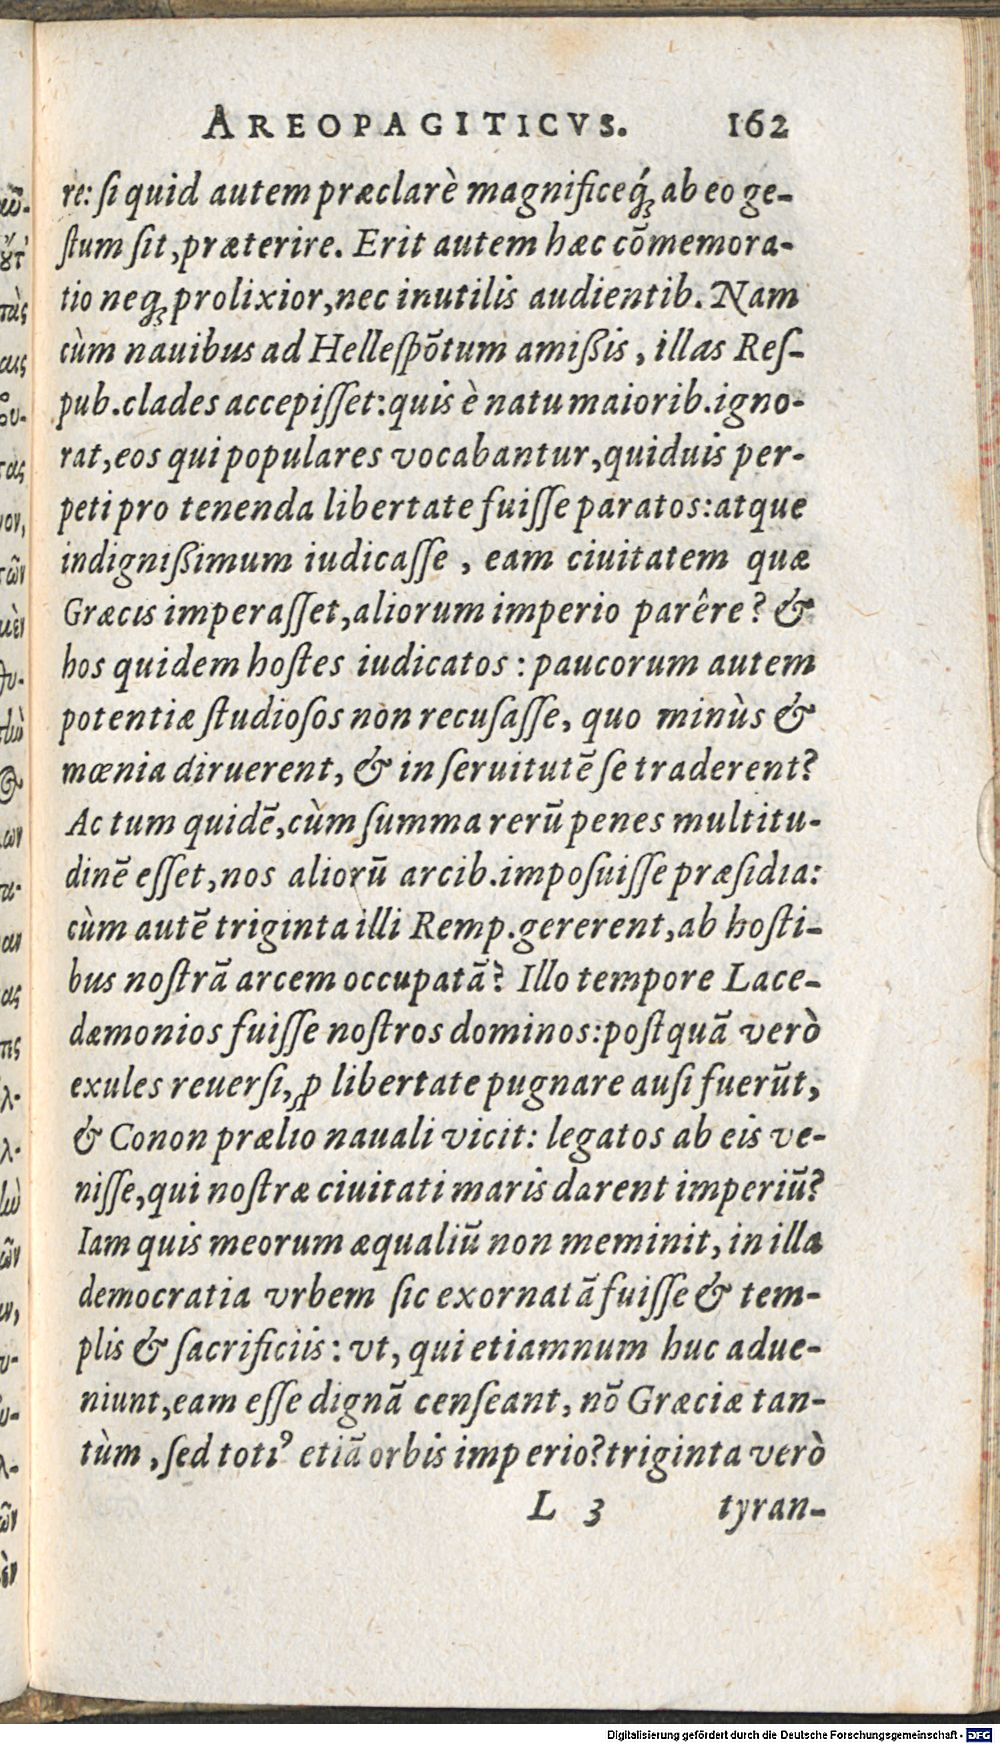 AREOPAGITICVS. 162
re: ſi quid autem præclarè magnificeq́ꝫ ab eo ge-
ſtum ſit, præterire. Erit autem hæc cōmemora-
tio neqꝫ prolixior, nec inutilis audientib. Nam
cùm nauibus ad Helleſpōtum amiſsis, illas Reſ-
pub. clades accepiſſet: quis è natu maiorib. igno-
rat, eos qui populares vocabantur, quiduis per-
peti pro tenenda libertate fuiſſe paratos: atque
indigniſsimum iudicaſſe, eam ciuitatem quæ
Græcis imperaſſet, aliorum imperio parêre? &
hos quidem hoſtes iudicatos: paucorum autem
potentiæ ſtudioſos non recuſaſſe, quo minùs &
mœnia diruerent, & in ſeruitutē ſe traderent?
Ac tum quidē, cùm ſumma rerū penes multitu-
dinē eſſet, nos aliorū arcib. impoſuiſſe præſidia:
cùm autē triginta illi Remp. gererent, ab hoſti-
bus noſtrā arcem occupatā? Illo tempore Lace-
dæmonios fuiſſe noſtros dominos: poſtquā verò
exules reuerſi, ꝓ libertate pugnare auſi fuerūt,
& Conon prælio nauali vicit: legatos ab eis ve-
niſſe, qui noſtræ ciuitati maris darent imperiū?
Iam quis meorum æqualiū non meminit, in illa
democratia vrbem ſic exornatā fuiſſe & tem-
plis & ſacrificiis: vt, qui etiamnum huc adue-
niunt, eam eſſe dignā cenſeant, nō Græciæ tan-
tùm, ſed totiꝰ etiā orbis imperio? triginta verò
L 3 tyran-
Digitalisierung gefördert durch die Deutsche Forschungsgemeinschaft - DFG